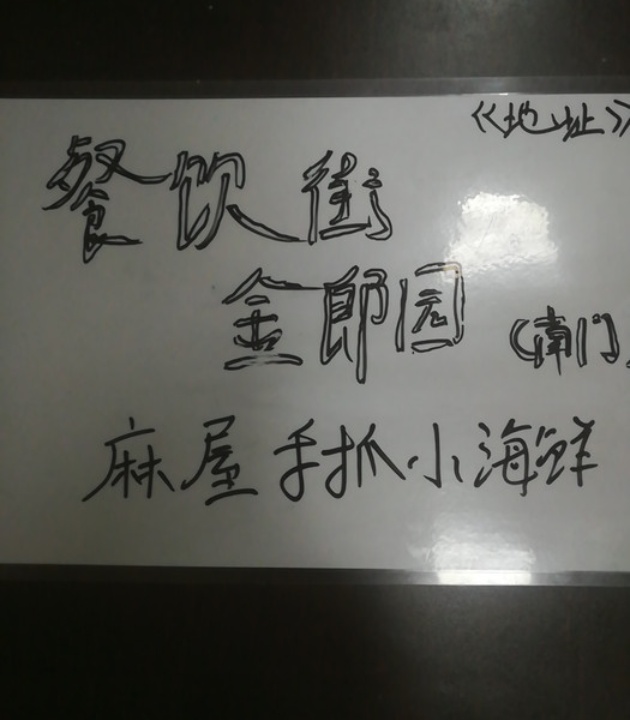 《地址》
餐饮街
金郎园
(南门)
麻屋手抓小海鲜